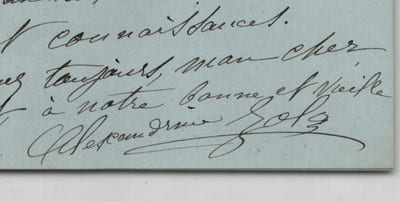 connaissances.
toujours, mon cher
à notre bonne et vieille
Alexandrine Zola